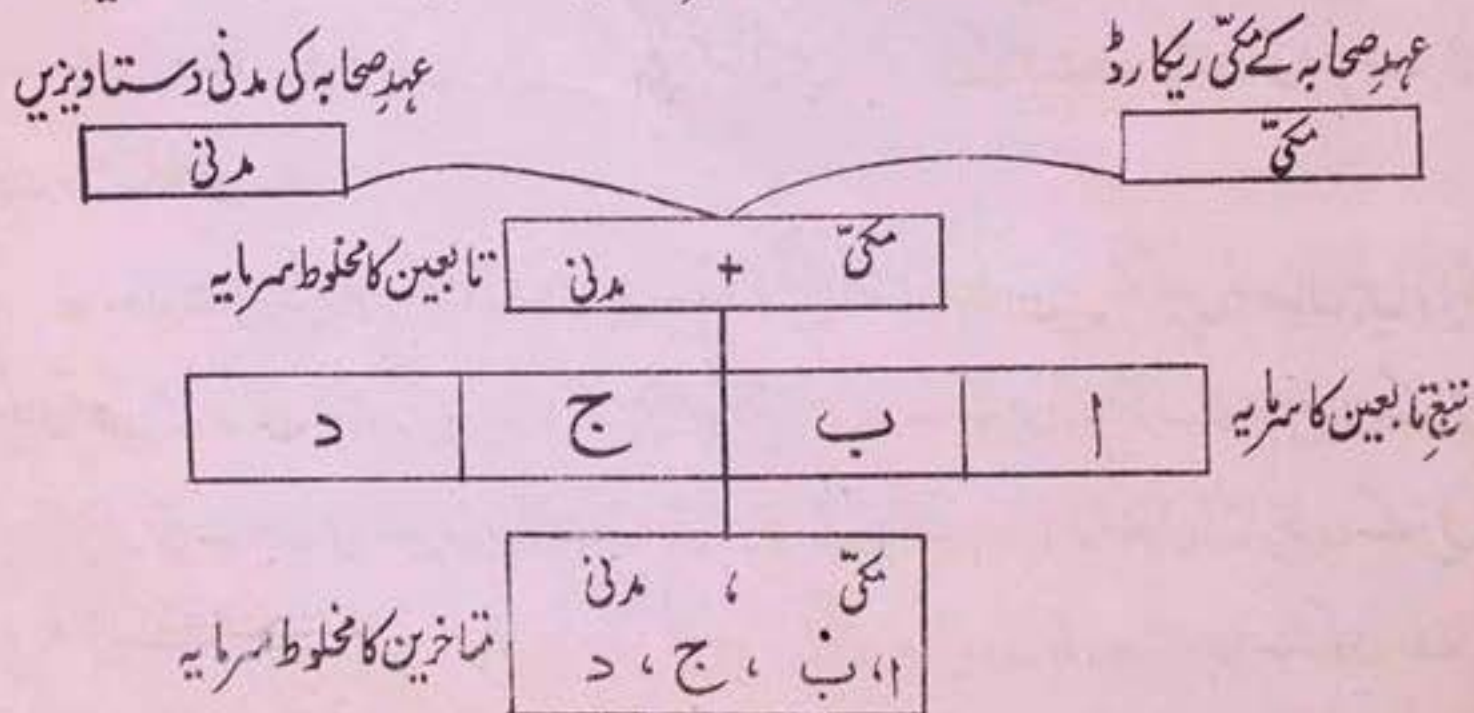 عہدِ صحابہ کے مکّی ریکارڈ
عہدِ صحابہ کی مدنی دستاویزیں
مکّی
مدنی
مکّی + مدنی
تابعین کا مخلوط سرمایہ
تبعِ تابعین کا سرمایہ
ا ب ج د
مکّی ، مدنی
ا، ب ، ج ، د
متاخرین کا مخلوط سرمایہ